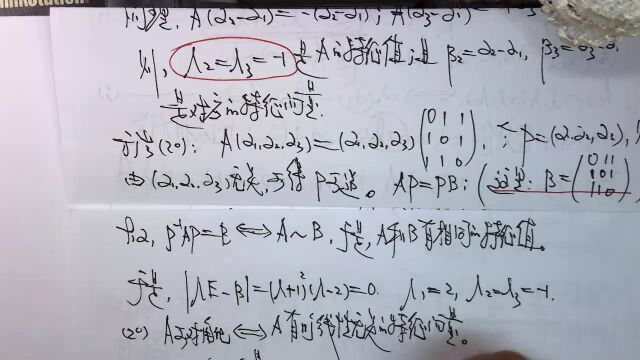 同理, A(α₂-α₁)=-(α₂-α₁); A(α₃-α₁)=
则, λ₂=λ₃=-1是A的特征值; 且 β₂=α₂-α₁, β₃=α₃-α₁
是对应的特征向量.
方法(20): A(α₁,α₂,α₃)=(α₁,α₂,α₃)(0 1 1; 1 0 1; 1 1 0). 令P=(α₁,α₂,α₃),
由(α₁,α₂,α₃)无关, 可得P可逆。AP=PB; (这里: B=(0 1 1; 1 0 1; 1 1 0)
P⁻¹AP=B⟺A~B, 于是, A和B有相同的特征值。
于是, |λE-B|=(λ+1)²(λ-2)=0. λ₁=2, λ₂=λ₃=-1.
(20) A可对角化⟺A有n个线性无关的特征向量。